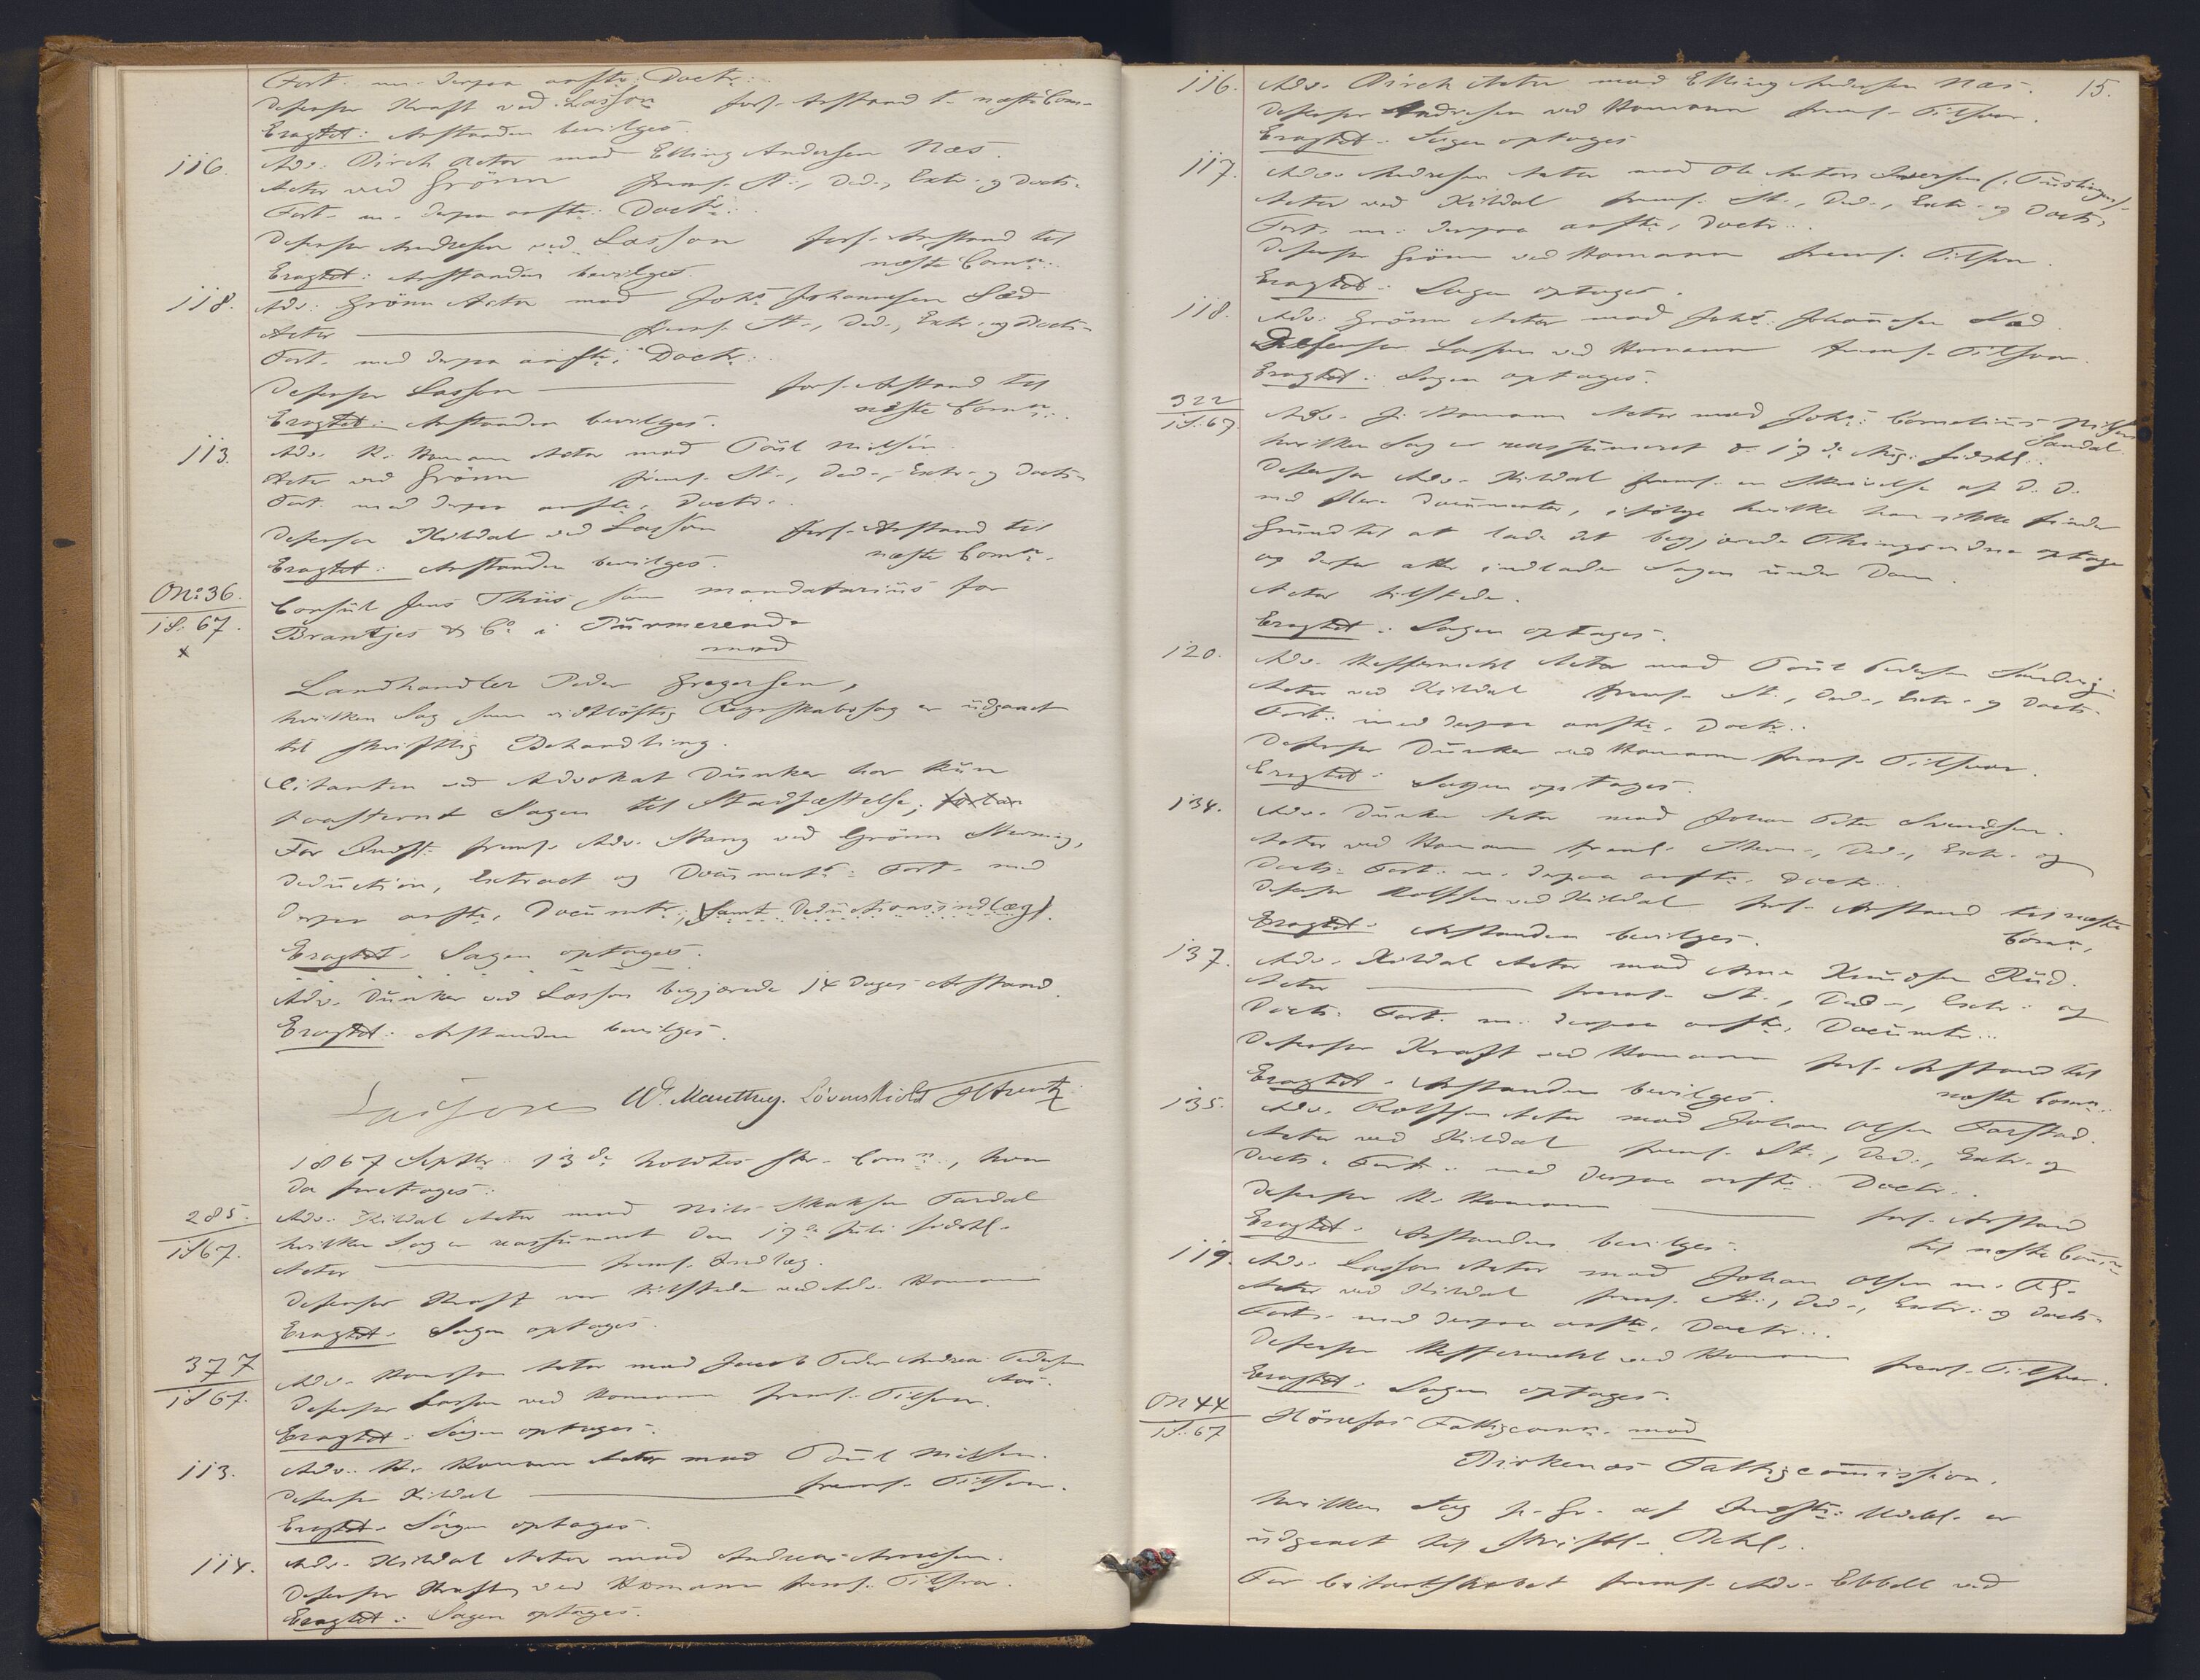 Fort. m. derpaa anfte. Doctr.
Defensor Kraft ved Lasson forl. Anstand t. næste Com.
Eragtet: Anstanden bevilges.
116. Adv. Birch Actor mod Elling Andersen Næs.
Actor ved Grönn freml. St., Ded., Extr. og Docts.
Fort. m. derpaa anfte. Doctr.
Defensor Andresen ved Lasson forl. Anstand til
næste Comn.
Eragtet: Anstanden bevilges.
118. Adv. Grönn Actor mod Johs. Johannesen Sæd
Actor freml. St., Ded., Extr. og Docts.
Fort. med derpaa anfte. Doctr.
Defensor Lasson forl. Anstand til
næste Comn.
Eragtet: Anstanden bevilges.
113. Adv. K. Homann Actor mod Poul Nielsen.
Actor ved Grönn freml. St., Ded., Extr. og Docts.
Fort. med derpaa anfte. Doctr.
Defensor Kildal ved Lasson forl. Anstand til
næste Comn.
Eragtet: Anstanden bevilges.
O No. 36.
18:67. Consul Jens Thiis, som mandatarius for
x Brantjes & Co. i Purmerende
mod
Landhandler Peder Gregersen,
hvilken Sag som vidtlöftig Regnskabssag er udgaaet
til skriftlig Behandling.
Citanten ved Advokat Dunker har kun
paastevnt Sagen til Stadfæstelse;
For Indst. freml. Adv. Stang ved Grönn Stevning,
Deduction, Extract og Documents. Fort. med
derpaa anfte. Documtr., samt Deductionsindlæg.
Eragtet: Sagen optages.
Adv. Dunker ved Lasson begjærede 14 Dages Anstand.
Eragtet: Anstanden bevilges.
Lasson W. Manthey. Lövenskiold
1867 Septbr. 13de holdtes Comn., hvor
da foretoges:
285.
1867. Adv. Kildal Actor mod Nils
hvilken Sag er reassumeret den 17de Juli sidstl.
Actor freml. Indlæg.
Defensor Kraft var tilstede ved Adv. Homann
Eragtet: Sagen optages.
377
1867. Adv. Actor mod Jacob Peder Andreas Pedersen
Defensor Lasson ved Homann freml. Tilsvar.
Eragtet: Sagen optages.
113. Adv. K. Homann Actor mod Poul Nielsen.
Defensor Kildal freml. Tilsvar.
Eragtet: Sagen optages.
114. Adv. Kildal Actor mod Andreas Arnesen.
Defensor Kraft ved Homann freml. Tilsvar.
Eragtet: Sagen optages.
15.
116. Adv. Birch Actor mod Elling Andersen Næs.
Defensor Andresen ved Homann freml. Tilsvar.
Eragtet: Sagen optages
117. Adv. Andresen Actor mod Ole Antons Iversen
Actor ved Kildal freml. St., Ded., Extr. og Docts.
Fort. m. derpaa anfte. Doctr.
Defensor Grönn ved Homann freml. Tilsvar.
Eragtet: Sagen optages.
118. Adv. Grönn Actor mod Johs. Johannesen Sæd
Defensor Lasson ved Homann freml. Tilsvar.
Eragtet: Sagen optages.
322
18:67. Adv. J. Homann Actor mod Johs. Cornelius Nilsen
Sandal
hvilken Sag er reassumeret d. 17de Aug. sidstl.
Defensor Adv. Kildal freml. en Skrivelse af D. D.
med flere Documenter, ifölge hvilke han ikke finder
Grund til at lade det begjærede Thingsvidne optage
og derfor atter indlader Sagen under Dom.
Actor tilstede.
Eragtet: Sagen optages.
120. Adv. Heffermehl Actor mod Poul Pedersen
Actor ved Kildal freml. St., Ded., Extr. og Docts.
Fort. med derpaa anfte. Doctr.
Defensor Dunker ved Homann freml. Tilsvar.
Eragtet: Sagen optages.
134. Adv. Dunker Actor mod Johan Peter Svendsen.
Actor ved Homann freml. Stevn., Ded., Extr. og
Docts. Fort. m. derpaa anfte. Doctr.
Defensor Rolfsen ved Kildal forl. Anstand til næste
Comn.
Eragtet: Anstanden bevilges.
137. Adv. Kildal Actor mod Arne Knudsen Rud.
Actor freml. St., Ded., Extr. og
Docts. Fort. m. derpaa anfte. Documtr.
Defensor Kraft ved Homann forl. Anstand til
næste Comn.
Eragtet: Anstanden bevilges.
135. Adv. Rolfsen Actor mod Johan Olsen Farstad.
Actor ved Kildal freml. St., Ded., Extr. og
Docts. Fort. med derpaa anfte. Doctr.
Defensor K. Homann forl. Anstand
til næste Comn.
Eragtet: Anstanden bevilges.
119. Adv. Lasson Actor mod Johan Olsen m. Fl.
Actor ved Kildal freml. St., Ded., Extr. og Docts.
Fort. med derpaa anfte. Doctr.
Defensor Heffermehl ved Homann freml. Tilsvar.
Eragtet: Sagen optages.
O N 44
18:67 Hönefos Fattigcomn. mod
Birkenæs Fattigcommission.
hvilken Sag p. Gr. af Indst. Udebl. er
udgaaet til skriftl. Behl.
For Citantskabet freml. Adv. Ebbell ved